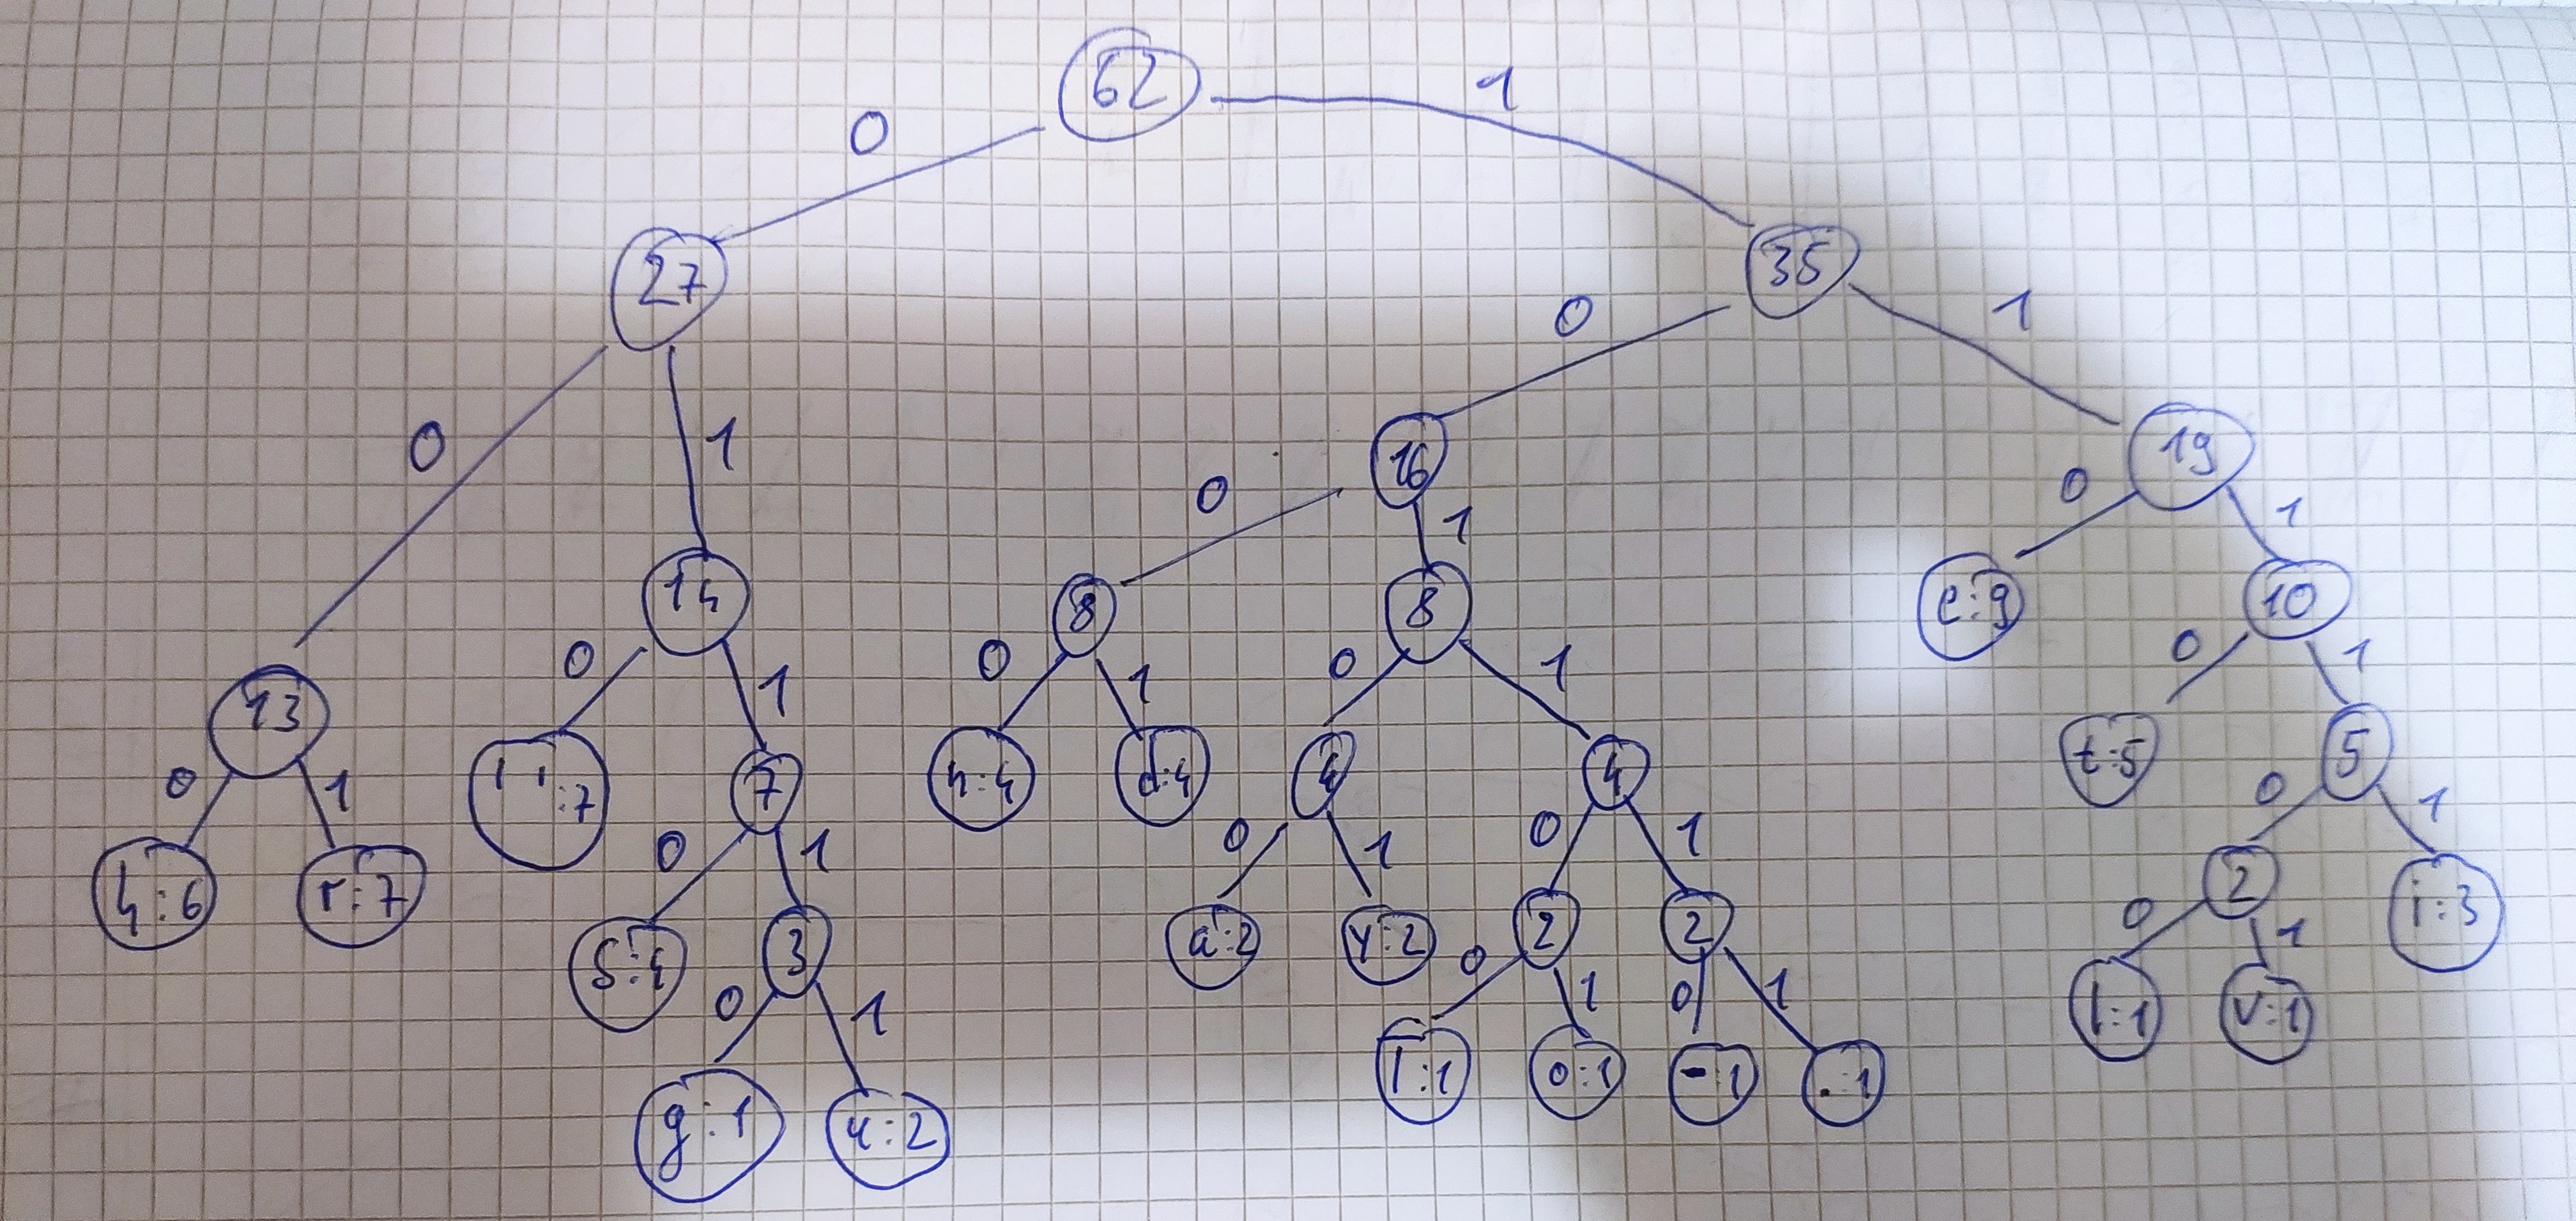 62
0 1
27 35
0 1 0 1
16 19
0 1 0 1
14 8 8 e:9 10
0 1 0 1 0 1 0 1
13 ' ':7 7 h:4 d:4 4 4 t:5 5
0 1 0 1 0 1 0 1 0 1
h:6 r:7 s:4 3 a:2 y:2 2 2 2 i:3
0 1 0 1 0 1 0 1
g:1 u:2 I:1 o:1 -:1 .:1 l:1 v:1